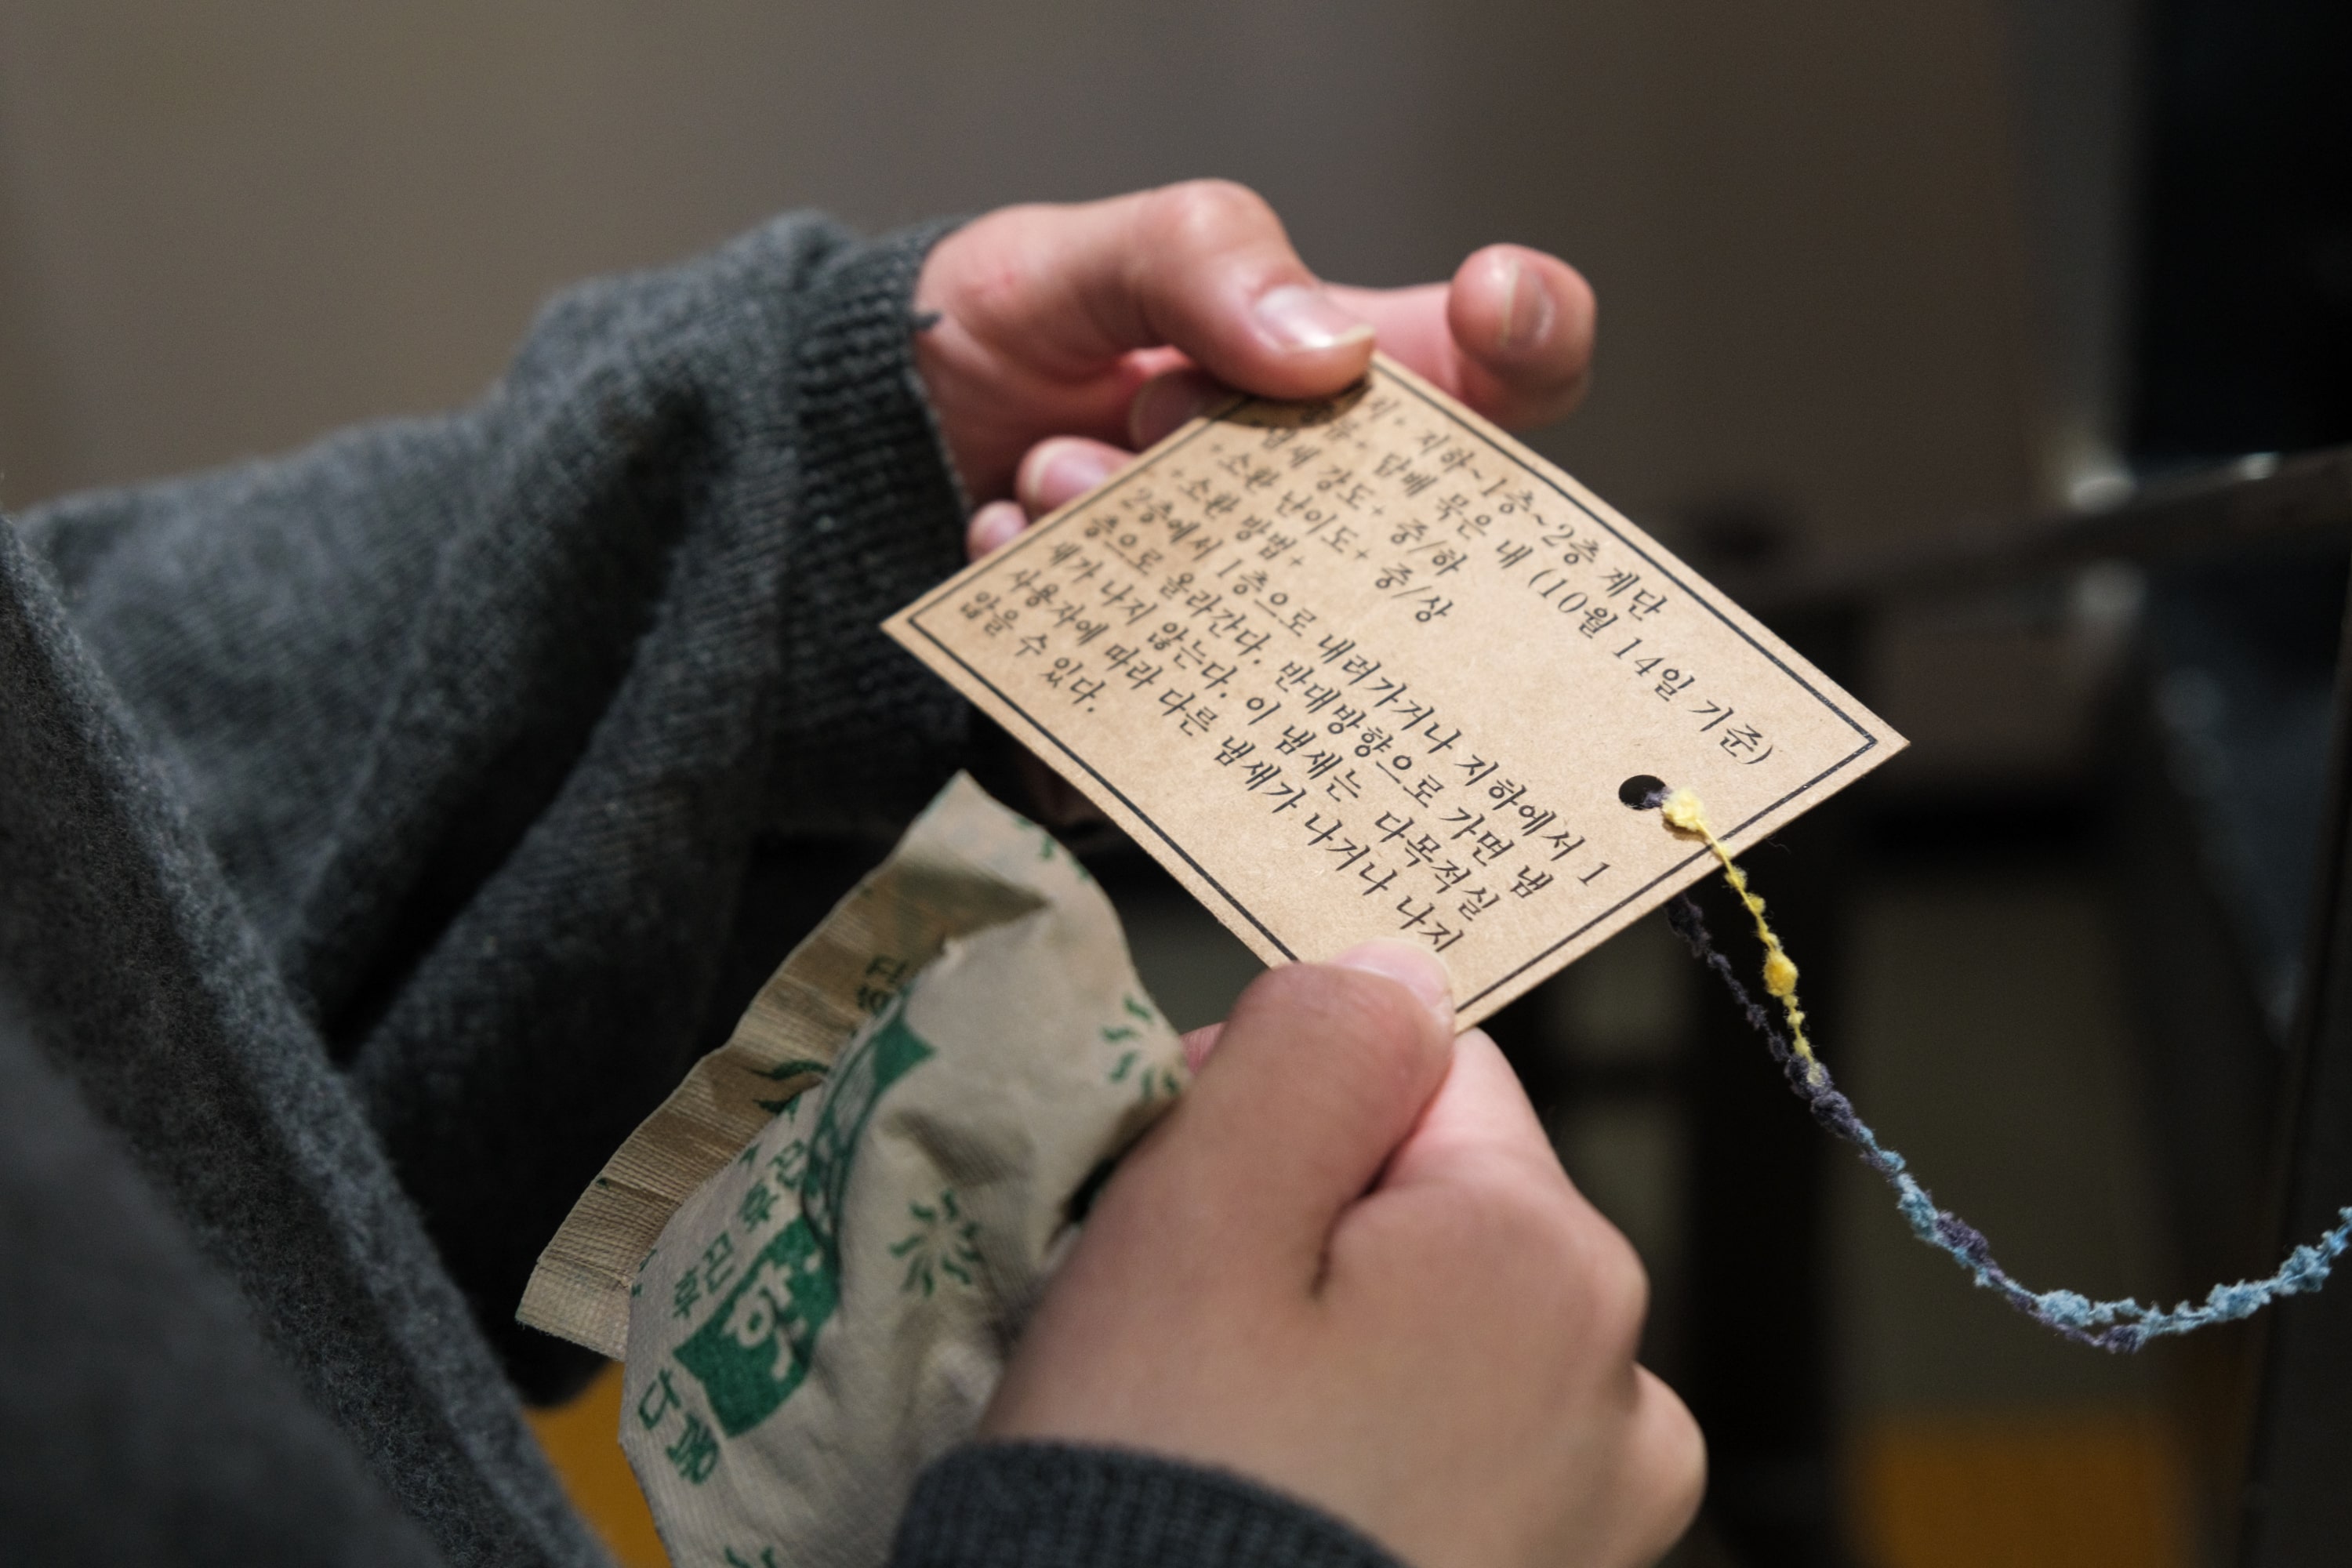 지+ 지하~1층~2층 계단
담배 묵은 내 (10월 14일 기준)
강도+ 중/하
+소환 난이도+ 중/상
+소환 방법+
2층에서 1층으로 내려가거나 지하에서 1
층으로 올라간다. 반대방향으로 가면 냄
새가 나지 않는다. 이 냄새는 다목적실
사용자에 따라 다른 냄새가 나거나 나지
않을 수 있다.
후끈 후끈
핫